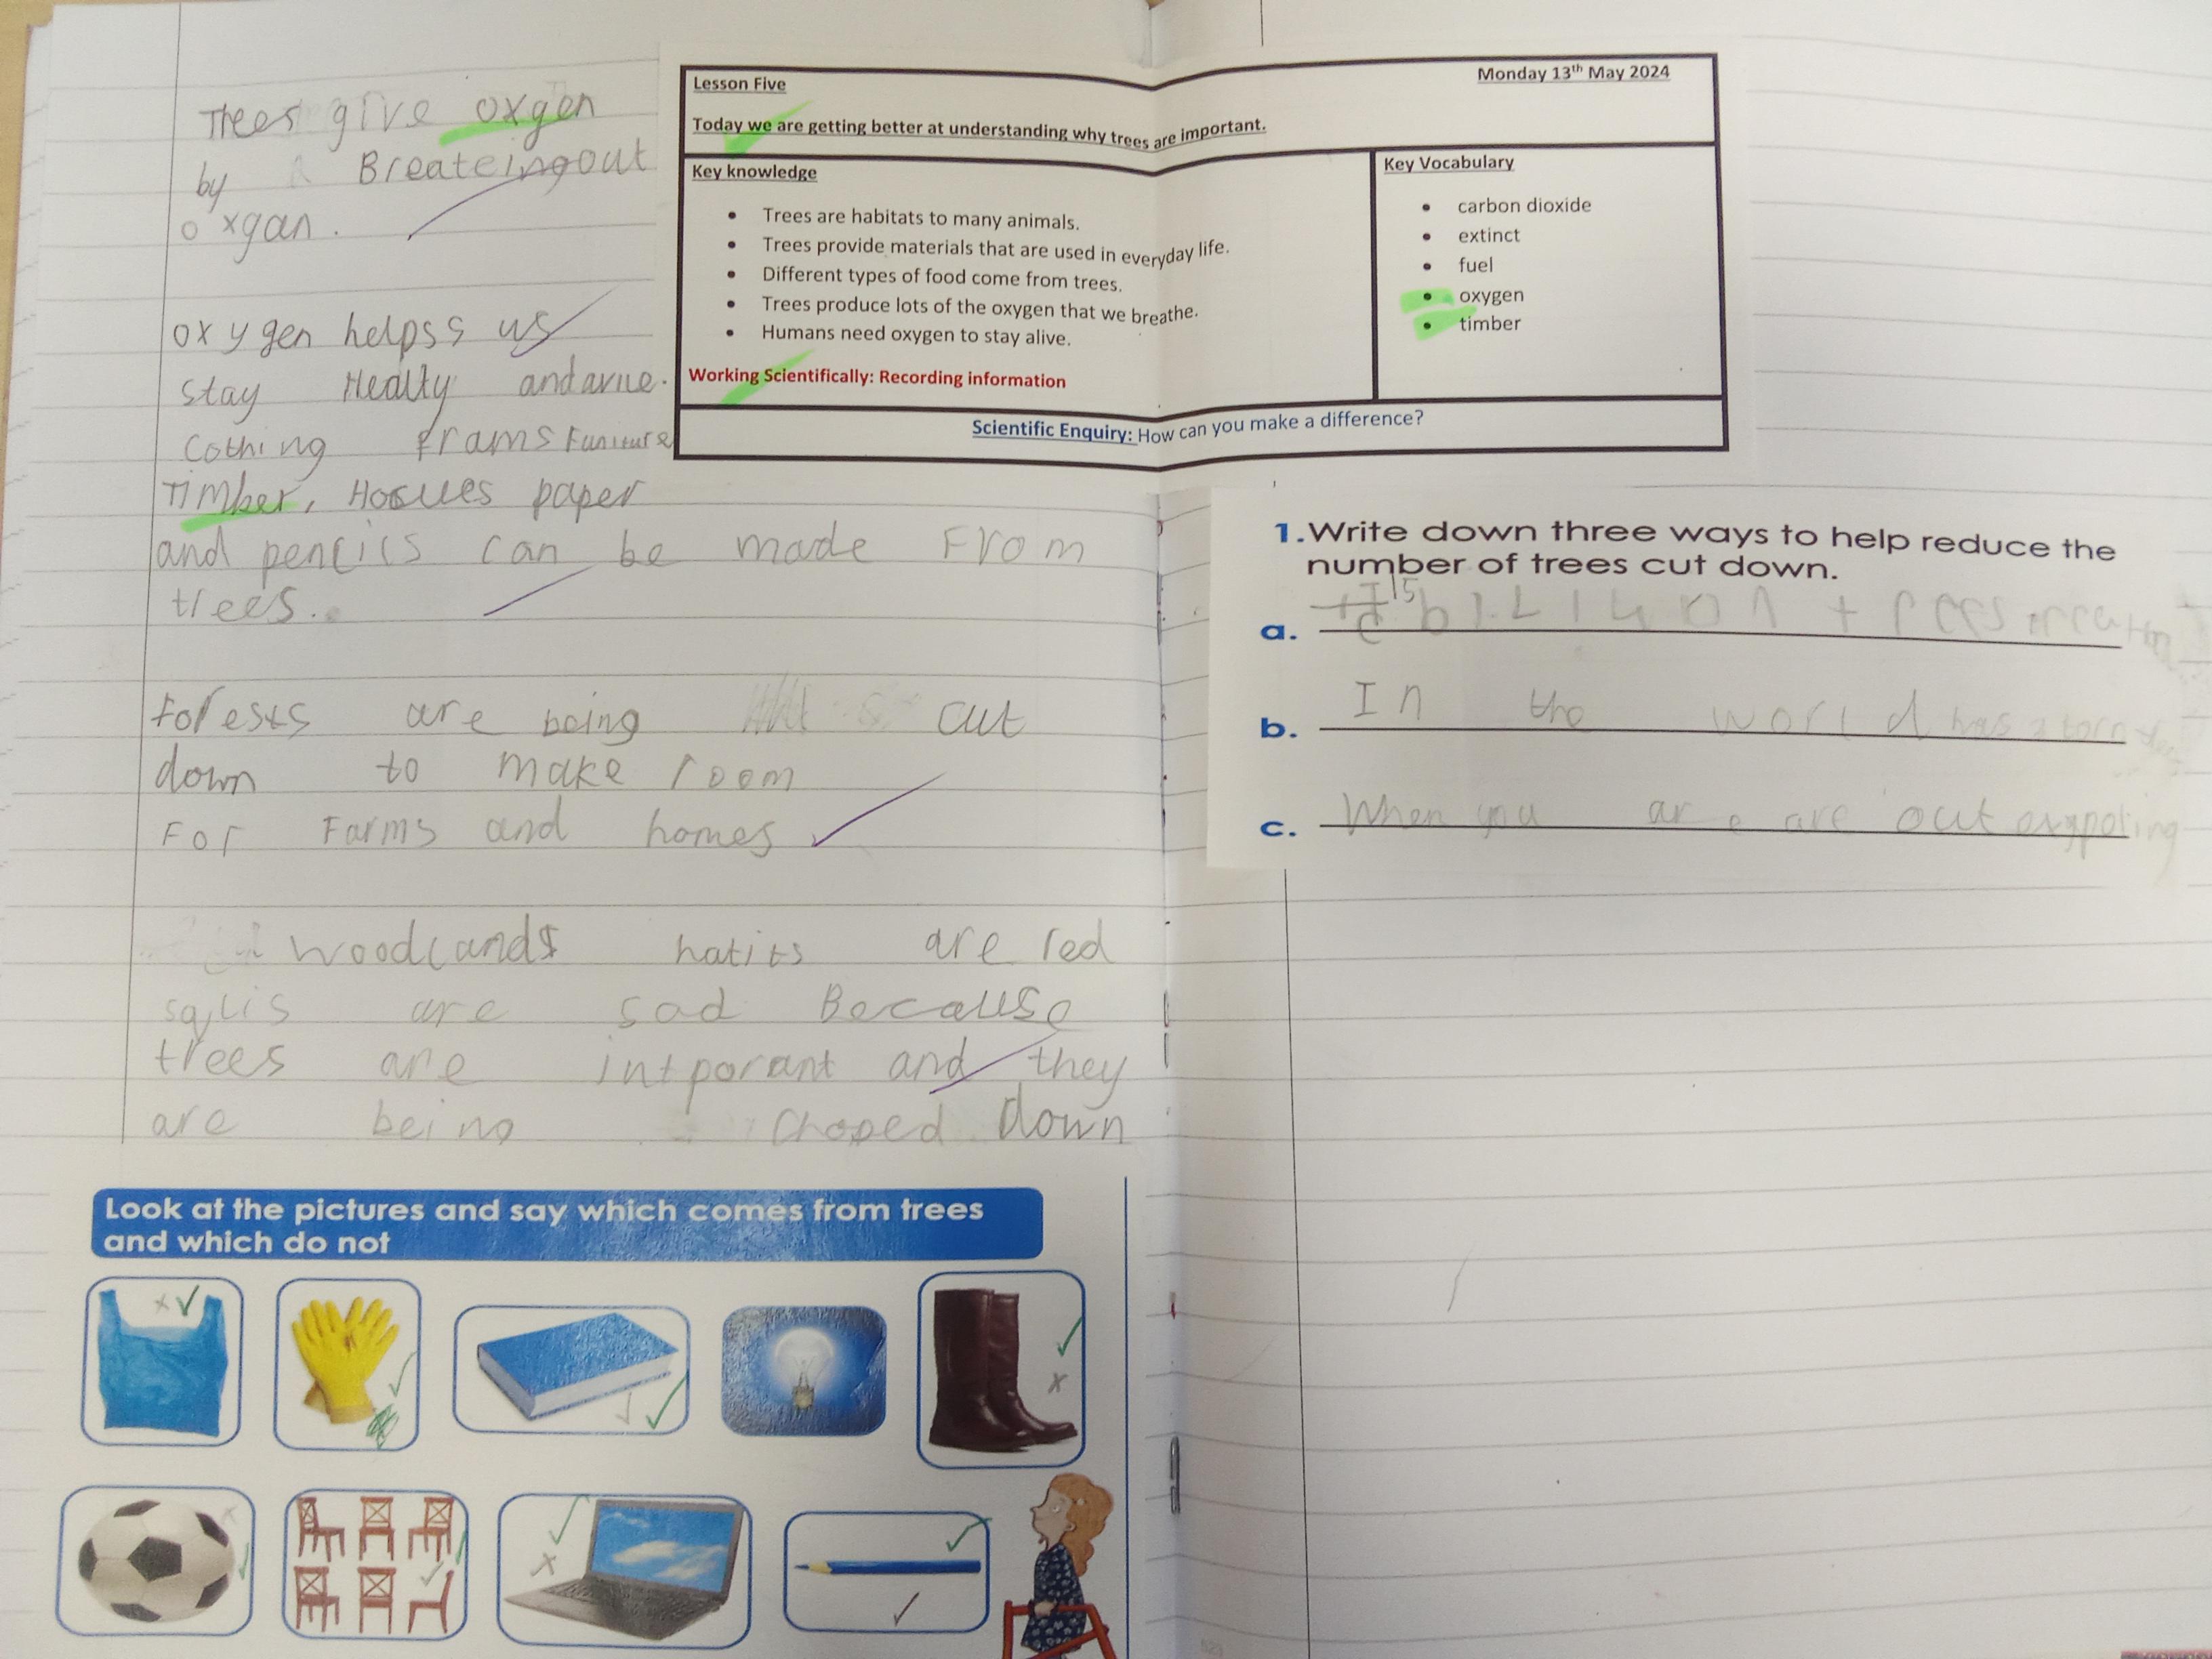 Trees give oxgen
by Breateingout
oxgan.
oxygen helpss us
stay Healty and
Cothing frams Funiture
Timber, Hosues paper
and pencils can be made From
trees.
Forests are being cut
down to make room
For Farms and homes
woodlands hatits are red
sqlis are sad Because
trees are intporant and they
are being Choped down
Look at the pictures and say which comes from trees
and which do not
Lesson Five
Monday 13th May 2024
Today we are getting better at understanding why trees are important.
Key knowledge
• Trees are habitats to many animals.
• Trees provide materials that are used in everyday life.
• Different types of food come from trees.
• Trees produce lots of the oxygen that we breathe.
• Humans need oxygen to stay alive.
Working Scientifically: Recording information
Key Vocabulary
• carbon dioxide
• extinct
• fuel
• oxygen
• timber
Scientific Enquiry: How can you make a difference?
1. Write down three ways to help reduce the
number of trees cut down.
a. 15 trees
b. In the world has
c. When you are are out